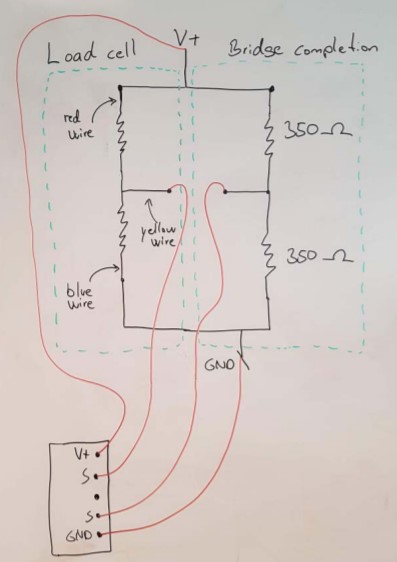 V+
Load cell
Bridge completion
red
wire
350Ω
yellow
wire
350Ω
blue
wire
GND
V+
S
S
GND